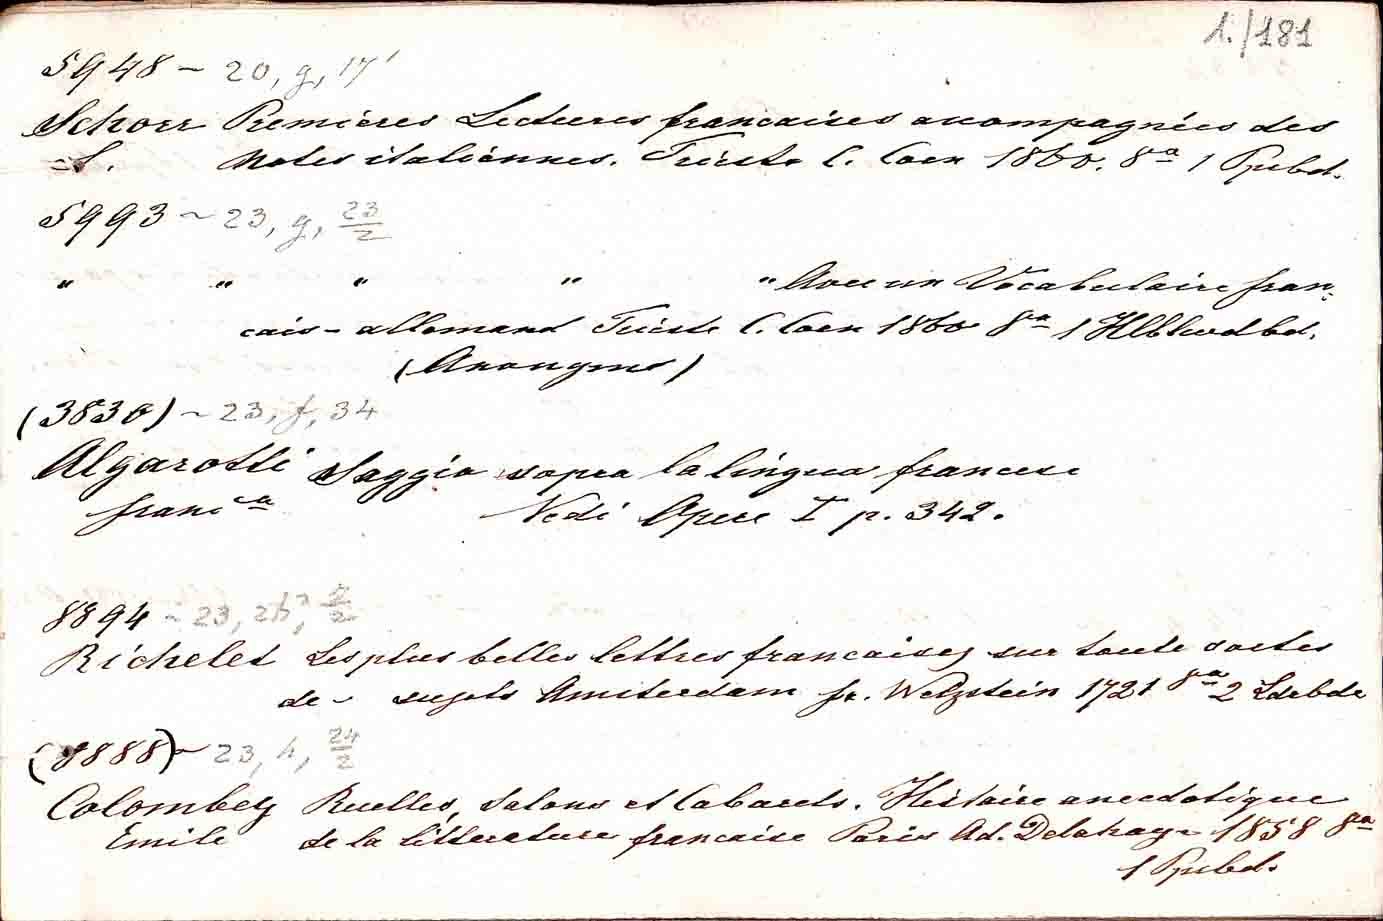 1./181
5948 ~ 20, g, 17'
Schorr Premières Lectures francaises accompagnées des
S. Notes italiénnes. Trieste C. Coen 1860. 8va 1 Ppubd.
5993 ~ 23, g, 23/2
" " " " " Avec un Vocabulaire fran-
cais - allemand Trieste C. Coen 1860 8va 1 Hlblwdbd.
(Anonyme)
(3830) ~ 23, f, 34
Algarotti Saggio sopra la lingua francese
franca Vedi Opere I p. 342.
8894 ~ 23, 2/2
Richelet Les plus belles lettres francaises sur toute sortes
de - sujets Amsterdam fr. Wetstein 1721 8va 2 Ldrbde
(8888) ~ 23, h, 24/2
Colombey Ruelles, Salons et Cabarets. Histoire anecdotique
Emile de la litterature francaise Paris Ad. Delahays 1858 8va
1 Ppubd.